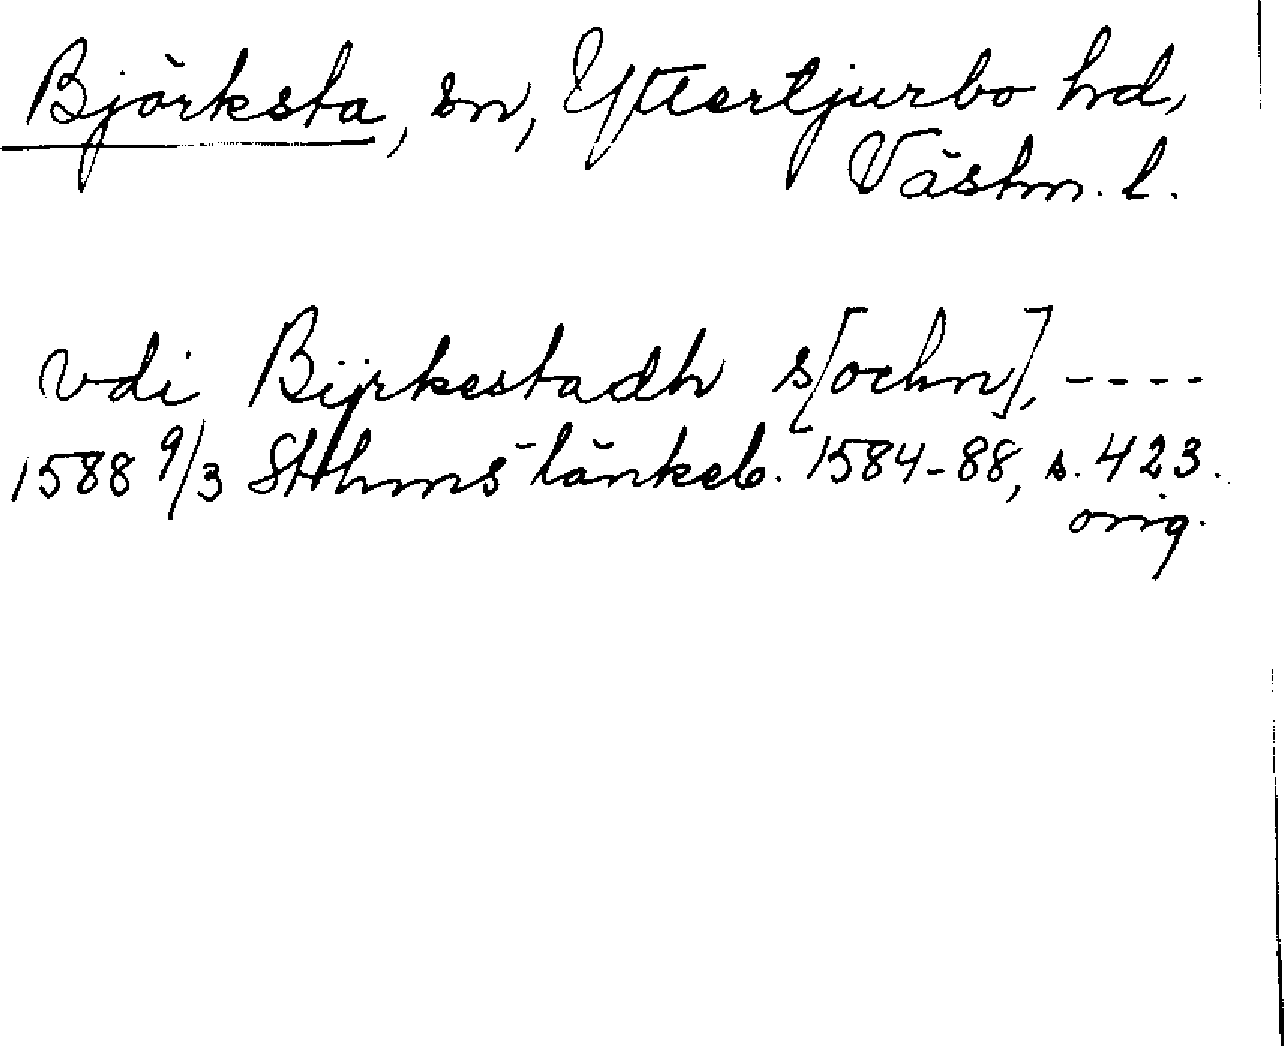 Björksta, sn, Yttertjurbo hd,
Västm. l.
vdi Bijrkestadh s[ochn], ----
1588 9/3 Sthms tänkeb. 1584-88, s. 423.
orig.